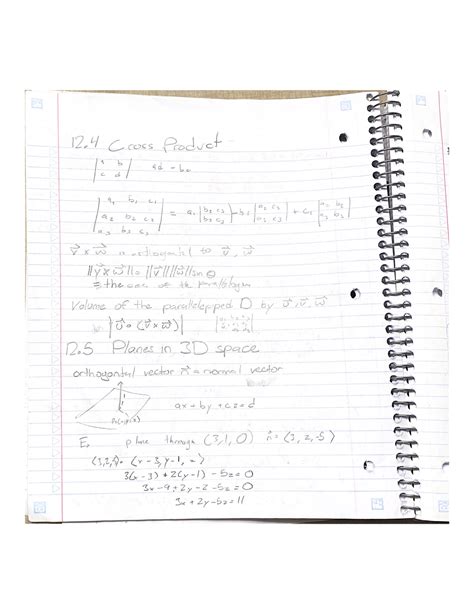 12.4 Cross Product
| a b | ad - bc
| c d |
| a₁ b₁ c₁ |
| a₂ b₂ c₂ | = a₁ | b₂ c₂ | - b₁ | a₂ c₂ | + c₁ | a₂ b₂ |
| a₃ b₃ c₃ | | b₃ c₃ | | a₃ c₃ | | a₃ b₃ |
v⃗ × w⃗ orthogonal to v⃗, w⃗
||v⃗ × w⃗|| = ||v⃗|| ||w⃗|| sin θ
= the of the parallelogram
Volume of the parallelepiped D by u⃗, v⃗, w⃗
is |u⃗ • (v⃗ × w⃗)|
12.5 Planes in 3D space
orthogontal vector n⃗ = normal vector
ax + by + cz = d
E, plane through (3, 1, 0) n⃗ = ⟨3, 2, -5⟩
(x - 3, y - 1,
3(x - 3) + 2(y - 1) - 5z = 0
3x - 9 + 2y - 2 - 5z = 0
3x + 2y - 5z = 11